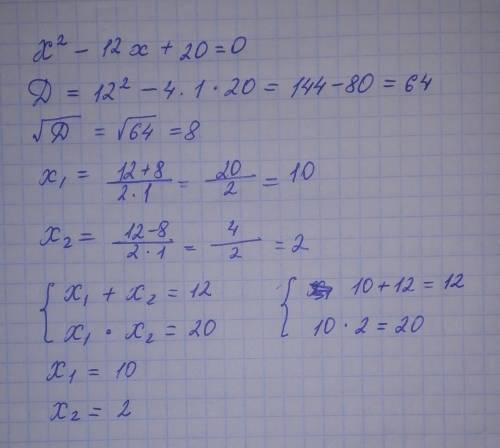 x² - 12x + 20 = 0
Д = 12² - 4 · 1 · 20 = 144 - 80 = 64
√Д = √64 = 8
x₁ = (12+8)/(2·1) = 20/2 = 10
x₂ = (12-8)/(2·1) = 4/2 = 2
{ x₁ + x₂ = 12
x₁ · x₂ = 20
{ 10 + 12 = 12
10 · 2 = 20
x₁ = 10
x₂ = 2